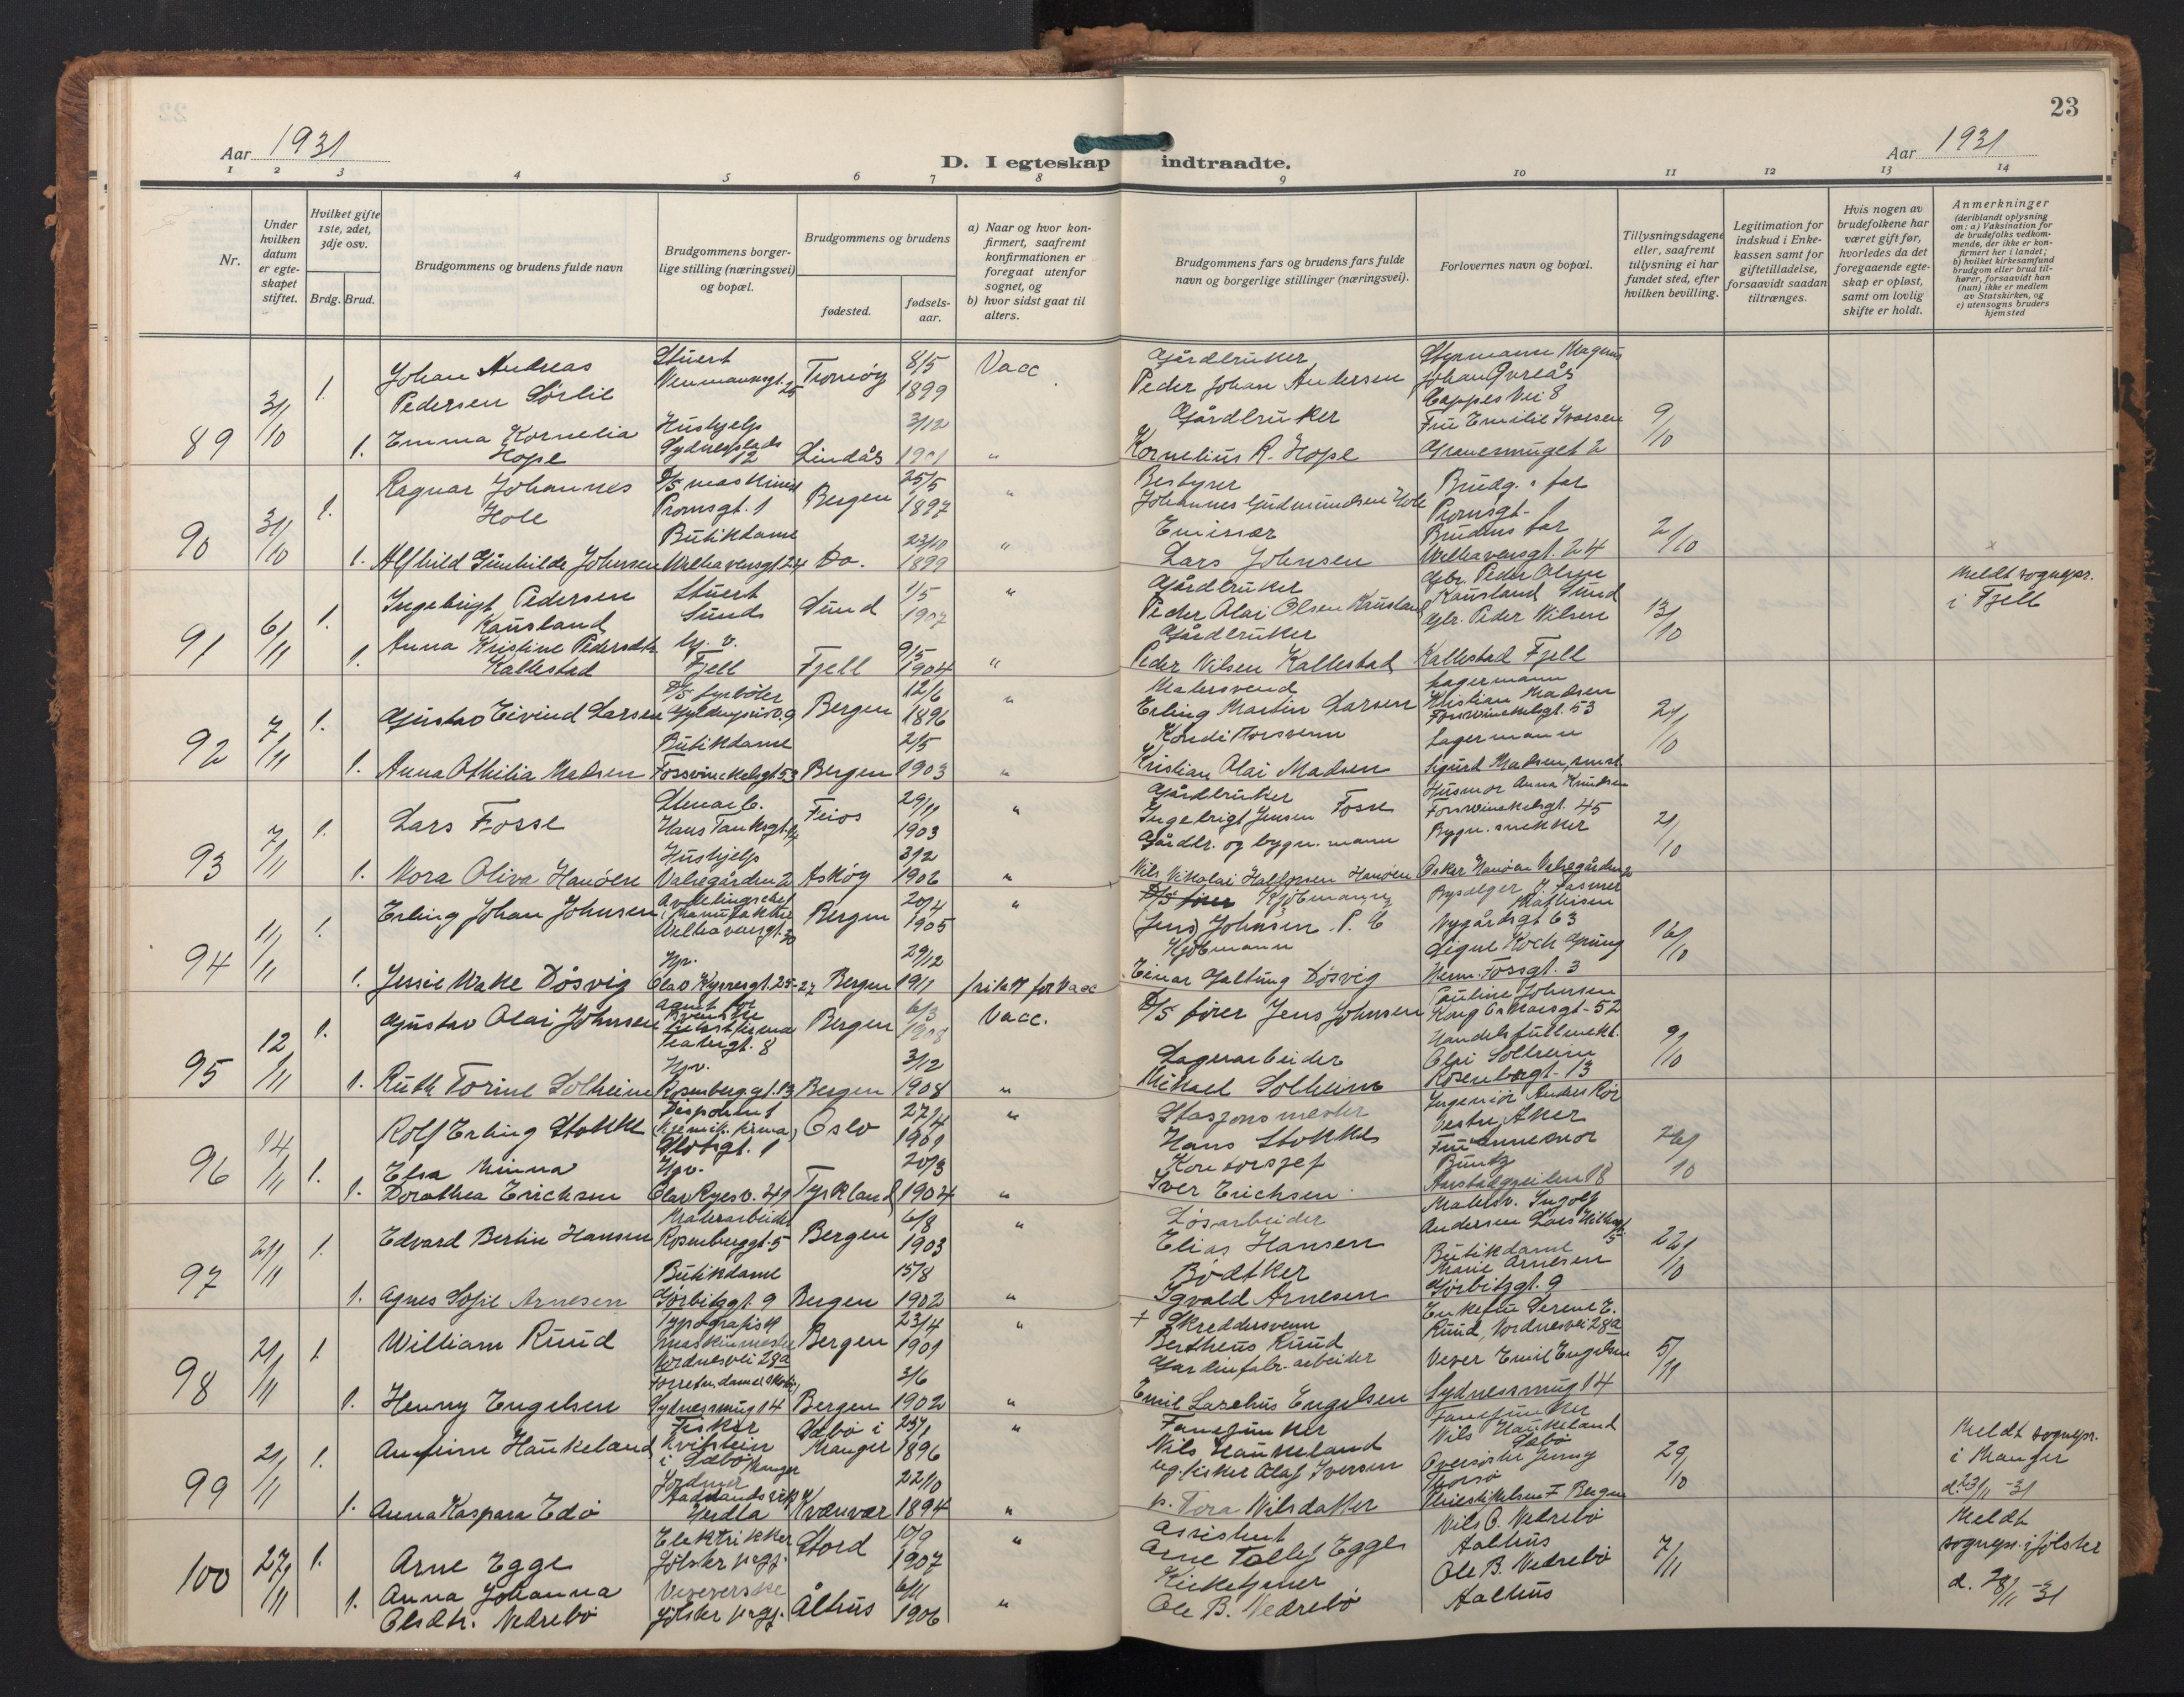 23
Aar 1931
D. I egteskap indtraadte.
Aar 1931
1 2 3 4 5 6 7 8 9 10 11 12 13 14
Nr.
Under hvilken datum er egteskapet stiftet.
Hvilket gifte 1ste, 2det, 3dje osv.
Brdg. Brud.
Brudgommens og brudens fulde navn
Brudgommens borgerlige stilling (næringsvei) og bopæl.
Brudgommens og brudens
fødested.
fødselsaar.
a) Naar og hvor konfirmert, saafremt konfirmationen er foregaat utenfor sognet, og
b) hvor sidst gaat til alters.
Brudgommens fars og brudens fars fulde navn og borgerlige stillinger (næringsvei).
Forlovernes navn og bopæl.
Tillysningsdagene eller, saafremt tillysning ei har fundet sted, efter hvilken bevilling.
Legitimation for indskud i Enkekassen samt for giftetilladelse, forsaavidt saadan tiltrænges.
Hvis nogen av brudefolkene har været gift før, hvorledes da det foregaaende egteskap er opløst, samt om lovlig skifte er holdt.
Anmerkninger
(deriblandt oplysning om: a) Vaksination for de brudefolks vedkommende, der ikke er konfirmert her i landet; b) hvilket kirkesamfund brudgom eller brud tilhører, forsaavidt han (hun) ikke er medlem av Statskirken, og c) utensogns bruders hjemsted
89 31/10 1. Johan Andreas Pedersen Sørlie Stuert 25 Tromøy 8/5 1899 Vacc Gårdbruker Peder Johan Andersen Styrmann Magnus Johan Øvreås Cappes Vei 8
1. Emma Kornelia Hope Hushjelp Sydnesplads 12 Lindås 3/12 1901 " Gårdbruker Kornelius R. Hope Fru Emilie Ivarsen 2 9/10
90 31/10 1. Ragnar Johannes Hole D/S maskinist Promsgt. 1 Bergen 25/5 1897 " Bestyrer Johannes Gudmundsen Hole Brudg.s far Promsgt. 1
1. Alfhild Gunhilde Johnsen Butikdame Welhavensgt. 24 Do. 23/10 1899 " Emissær Lars Johnsen Brudens far Welhavensgt. 24 2/10
91 6/11 1. Ingebrigt Pedersen Kausland Stuert Sund Sund 1/5 1907 " Gårdbruker Peder Olai Olsen Kausland Gbr. Peder Olsen Kausland Sund 13/10 Meldt sognepr. i Fjell
1. Anna Kristine Pedersdtr. Kallestad Fjell Fjell 9/5 1904 " Gårdbruker Peder Nilsen Kallestad Gbr. Peder Nilsen Kallestad Fjell
92 7/11 1. Gustav Eivind Larsen D/S fyrbøter Bergen 12/6 1896 " Malersvend Erling Martin Larsen Lagermann Kristian Madsen Fosswinckelsgt. 53 21/10
1. Anna Othilia Madsen Butikdame Fosswinckelsgt 53 Bergen 2/5 1903 " Konditorsvenn Kristian Olai Madsen Lagermann Sigurd Madsen, smst
93 7/11 1. Lars Fosse Hans Tanksgt. Feios 29/11 1903 " Gårdbruker Ingebrigt Jensen Fosse Husmor Anna Knudsen Fosswinckelsgt. 45 21/10
1. Nora Oliva Hanøen Hushjelp Valsegården 2 Askøy 3/2 1902 " Gårdbr. og bygn. mann Nils Nikolai Halvorsen Hanøen Bygn. snekker Oskar Hanøen Valsegården 2
94 11/11 1. Erling Johan Johnsen Avdelingschef i Manufaktur Welhavensgt. 30 Bergen 20/4 1905 " Kjøbmann Jens Johnsen. Mathisen Nygårdsgt 63 16/10
1. Jessie Wake Døsvig Hv. Olav Kyrresgt. 25-27 Bergen 29/12 1911 fritatt for Vacc Kjøbmann Einar Galtung Døsvig Signe Koch Herm. Fossgt. 3
95 12/11 1. Gustav Olai Johnsen Agent for Teatergt. 8 Bergen 6/3 1908 Vacc. D/S fører Jens Johnsen Pauline Johnsen Kong Oscarsgt. 52 9/10
1. Ruth Torine Solheim Hv. Rosenberggt. 13 Bergen 3/12 1908 " Lagerarbeider Mikael Solheim Handelsfullmekt. Olai Solheim Rosenberggt. 13
96 14/11 1. Rolf Erling Stokke Disponent (Kjemik. firma) Slotsgt. 1 Oslo 27/4 1901 " Stasjonsmester Hans Stokke Ingeniør Anders Rør Vestre Aker 26/10
1. Elsa Minna Dorothea Erichsen Hv. Olav Ryesv. 49 Tyskland 20/3 1904 " Kontorsjef Iver Erichsen Fru Buntz 18
97 21/11 1. Edvard Bertin Hansen Malerarbeider Rosenberggt. 5 Bergen 6/8 1903 " Løsarbeider Elias Hansen Malersv. Ingolf Andersen Lars Hillesgt. 15 22/10
1. Agnes Sofie Arnesen Butikdame Gørbitzgt. 9 Bergen 15/8 1902 " Bødtker Sgvald Arnesen Butikdame Marie Arnesen Gørbitzgt. 9
98 21/11 1 William Ruud Typografisk maskinmester Nordnesvei 28a Bergen 23/4 1901 " + Skreddersvenn Bertheus Ruud Enkefru Serene E. Ruud, Nordnesvei 28a 5/11
1. Henny Engelsen Forretn.dame Sydnessmug 14 Bergen 3/6 1902 " Gardinfabr. arbeider Emil Lazelius Engelsen Vever Emil Engelsen Sydnessmug 14
99 21/11 1. Anfinn Haukeland Fisker Kvitstein i Sæbø Manger Sæbø i Manger 25/1 1896 " Fanejunker Nils Haukeland Fanejunker Nils Haukeland Sæbø 29/10 Meldt sognepr. i Manger d. 23/11-31
1. Anna Kaspara Edø Jordmor Herdla Kvænvær 22/10 1894 " ug. fisker Olaf Iversen p. Tora Nilsdatter Oversøster Jenny Thorsø Bergen
100 27/11 1. Arne Egge Elektrikker Jølster prgj. Stord 10/9 1907 " Assistent Arne Tollef Egge Nils O. Nedrebø Aalhus 7/11 Meldt sognepr. i Jølster d. 28/11-31
1. Anna Johanna Olsdtr. Nedrebø Veverske Jølster prgj. Ålhus 6/11 1906 " Kirketjener Ole B. Nedrebø Ole B. Nedrebø Aalhus